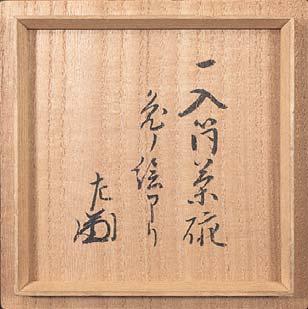 一入筒茶碗
兎ノ絵アリ
左